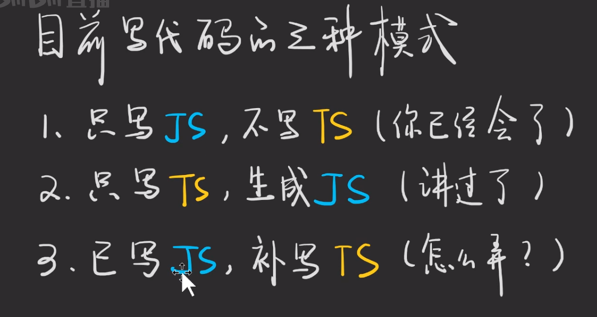 目前写代码的三种模式
1. 只写JS,不写TS(你已经会了)
2. 只写TS,生成JS(讲过了)
3. 已写JS,补写TS(怎么弄?)